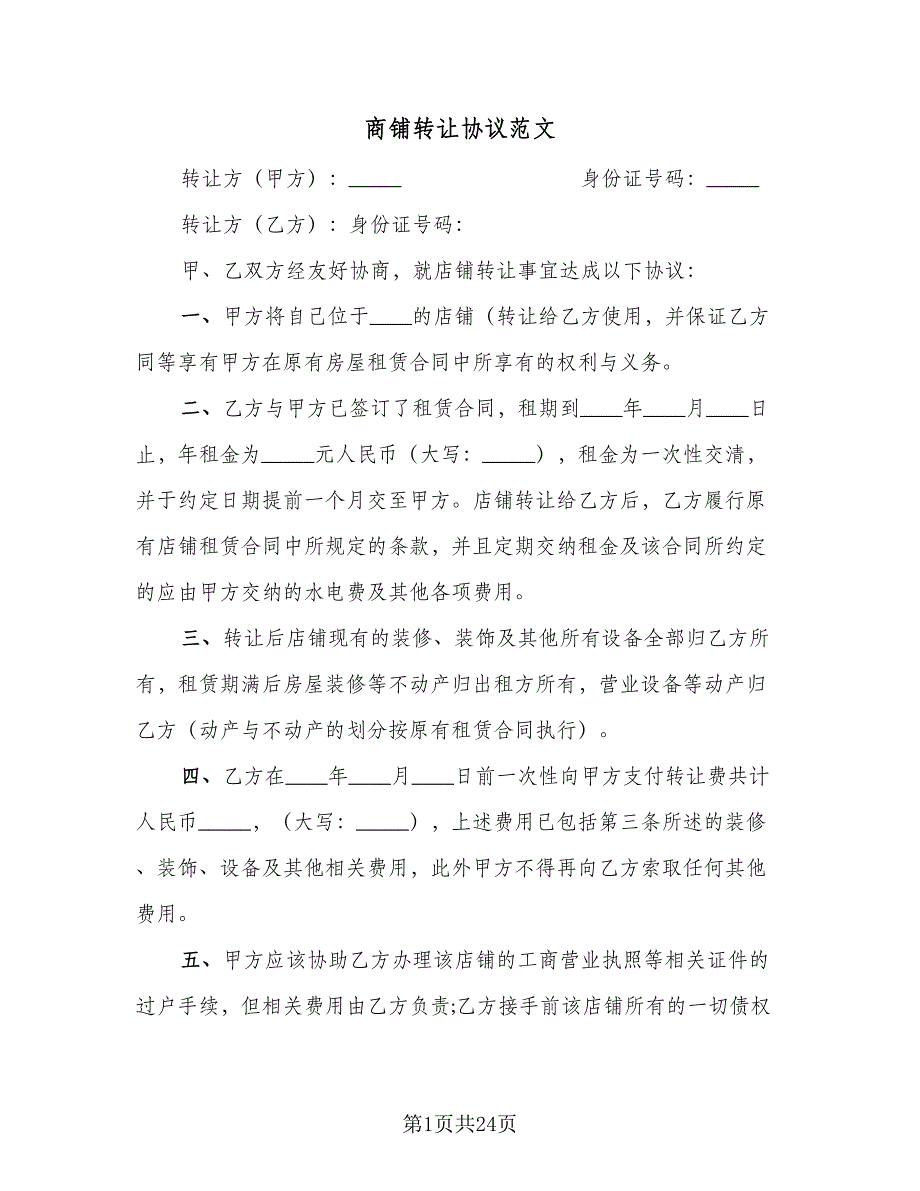 商铺转让协议范文
转让方（甲方）：_____ 身份证号码：_____
转让方（乙方）：身份证号码：
甲、乙双方经友好协商，就店铺转让事宜达成以下协议：
一、甲方将自己位于____的店铺（转让给乙方使用，并保证乙方
同等享有甲方在原有房屋租赁合同中所享有的权利与义务。
二、乙方与甲方已签订了租赁合同，租期到____年____月____日
止，年租金为_____元人民币（大写：_____），租金为一次性交清，
并于约定日期提前一个月交至甲方。店铺转让给乙方后，乙方履行原
有店铺租赁合同中所规定的条款，并且定期交纳租金及该合同所约定
的应由甲方交纳的水电费及其他各项费用。
三、转让后店铺现有的装修、装饰及其他所有设备全部归乙方所
有，租赁期满后房屋装修等不动产归出租方所有，营业设备等动产归
乙方（动产与不动产的划分按原有租赁合同执行）。
四、乙方在____年____月____日前一次性向甲方支付转让费共计
人民币_____，（大写：_____），上述费用已包括第三条所述的装修
、装饰、设备及其他相关费用，此外甲方不得再向乙方索取任何其他
费用。
五、甲方应该协助乙方办理该店铺的工商营业执照等相关证件的
过户手续，但相关费用由乙方负责;乙方接手前该店铺所有的一切债权
第1页共24页